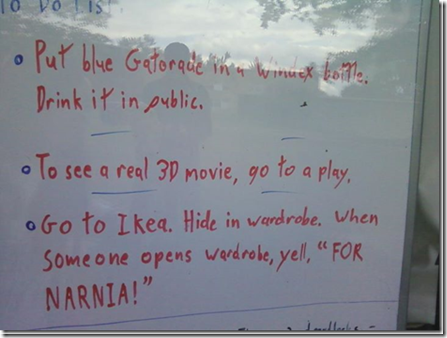 To Do List
Put blue Gatorade in a Windex bottle.
Drink it in public.
To see a real 3D movie, go to a play.
Go to Ikea. Hide in wardrobe. When
someone opens wardrobe, yell, "FOR
NARNIA!"